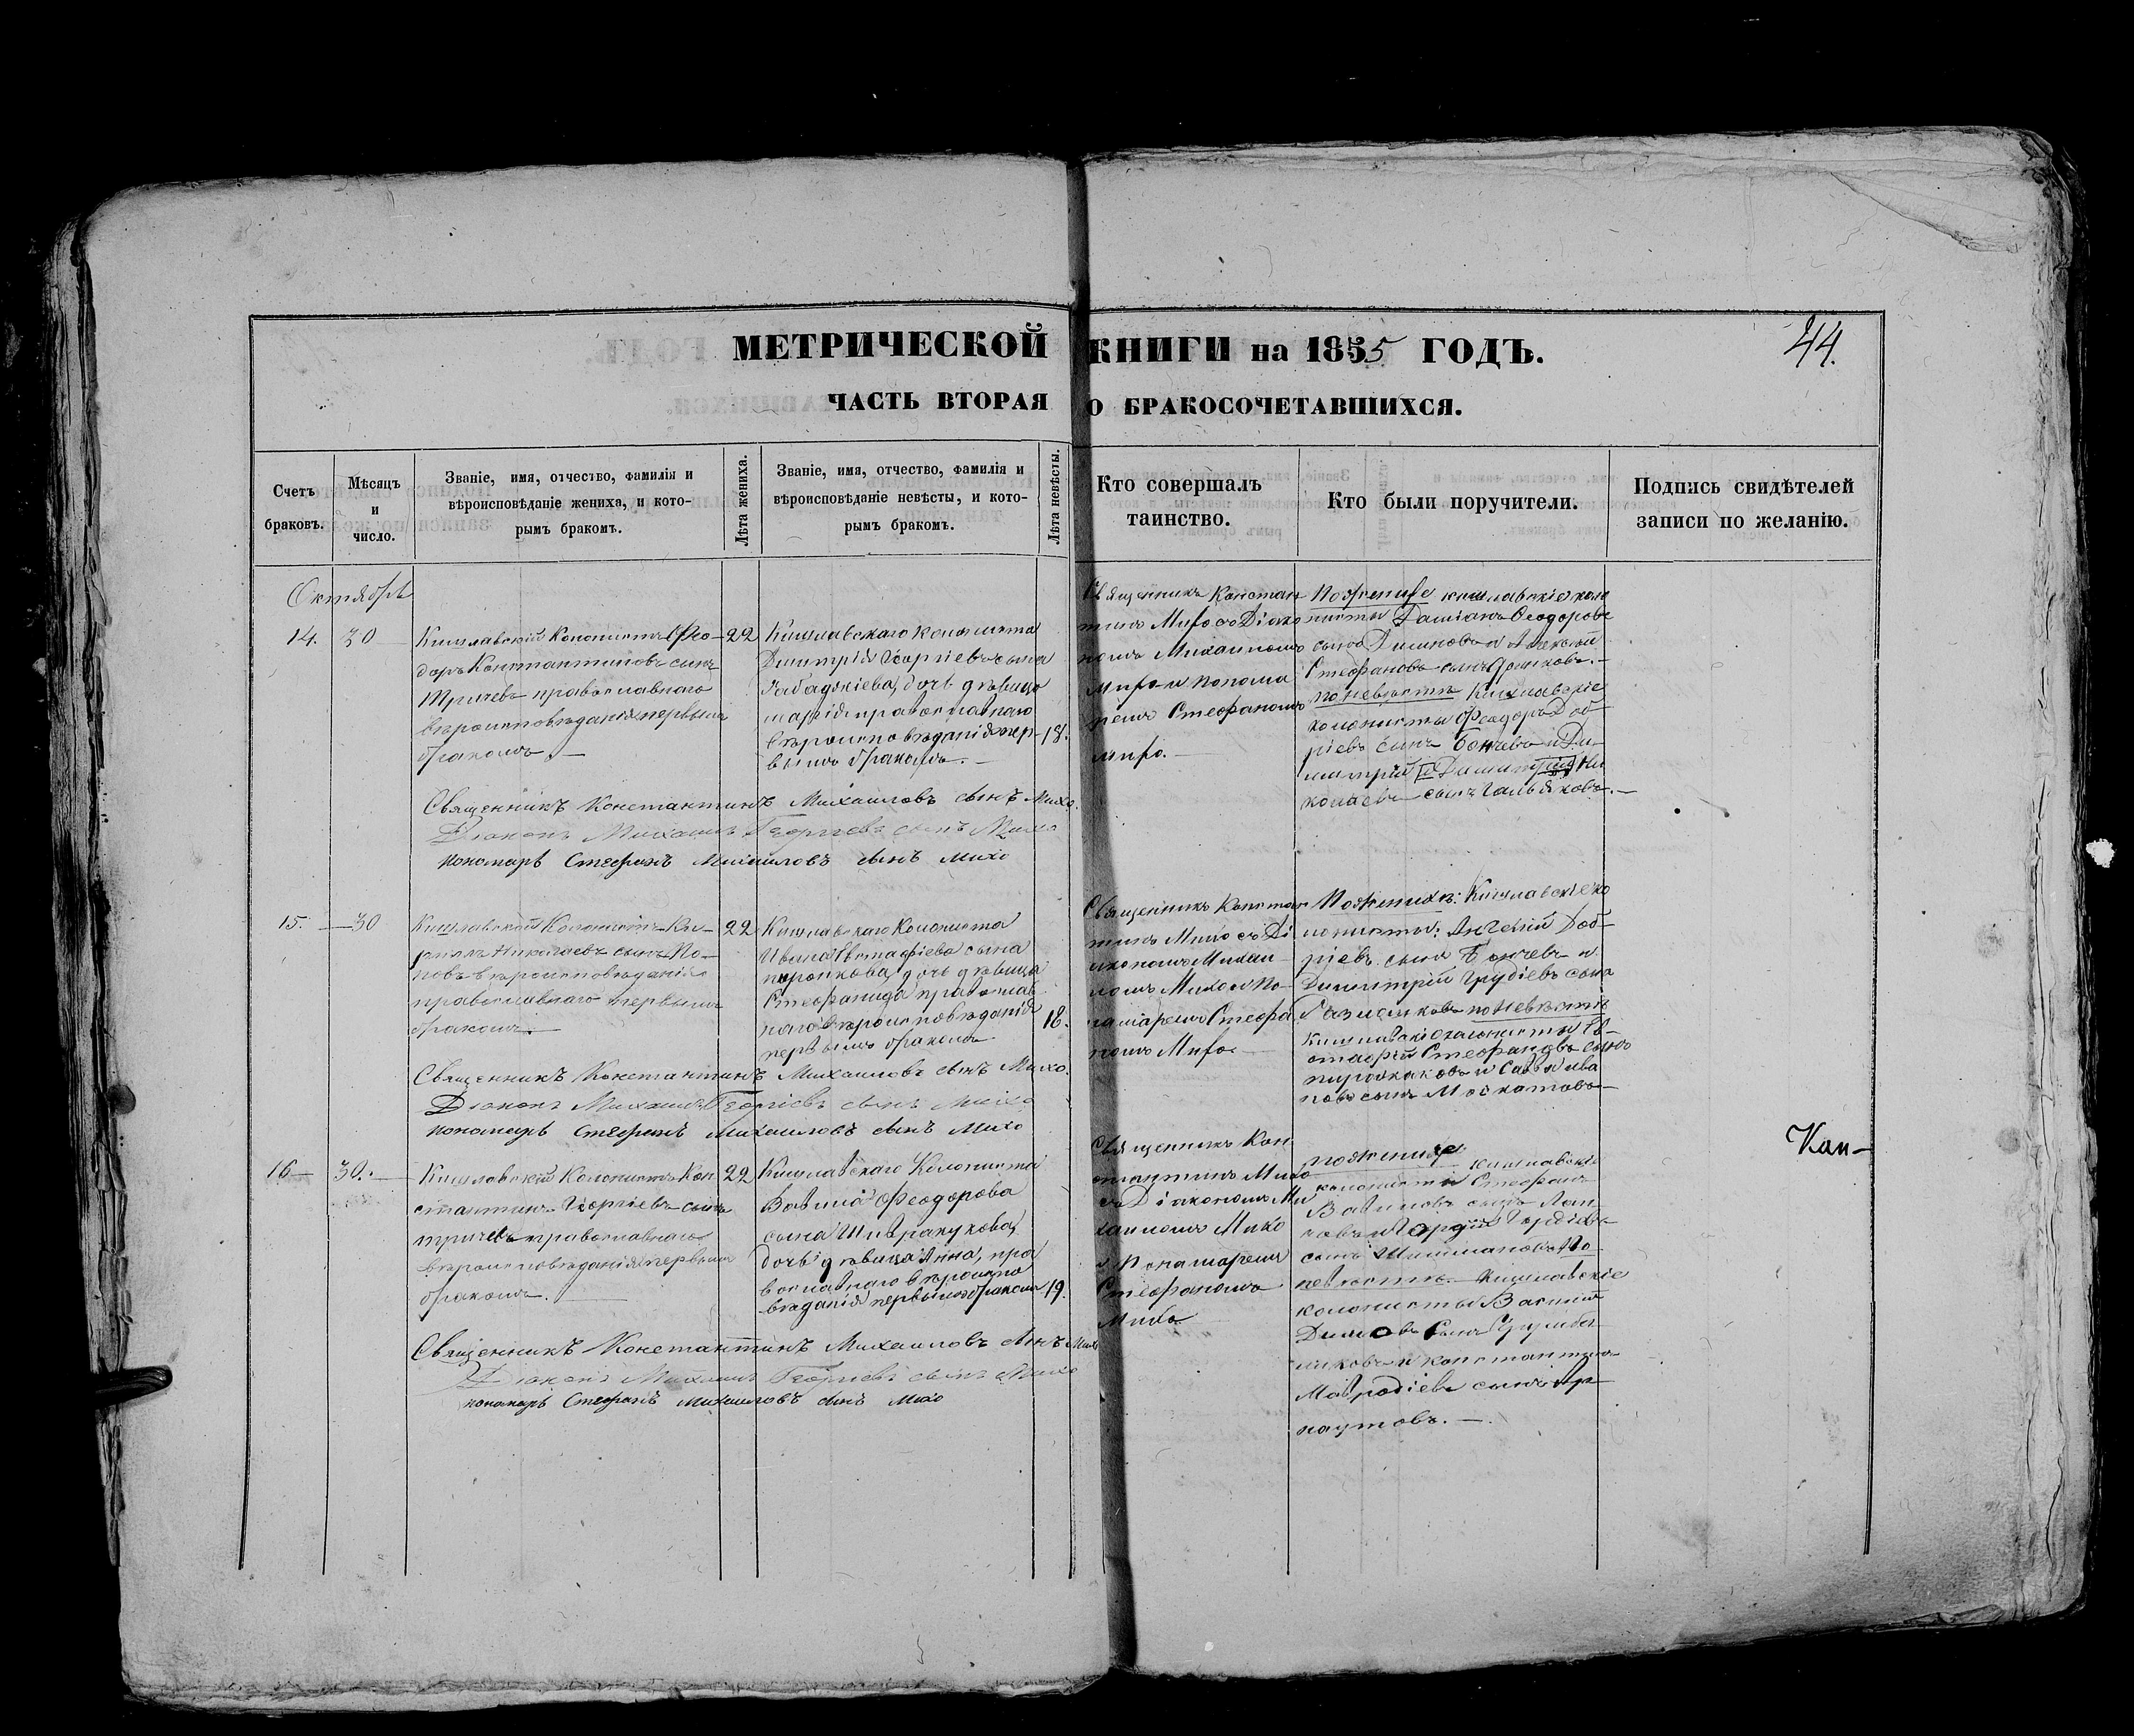 МЕТРИЧЕСКОЙ КНИГИ на 1855 ГОДЪ.
44.
ЧАСТЬ ВТОРАЯ О БРАКОСОЧЕТАВШИХСЯ.
Счетъ браковъ.
Мѣсяцъ и число.
Званіе, имя, отчество, фамилія и
вѣроисповѣданіе жениха, и кото-
рымъ бракомъ.
Лѣта жениха.
Званіе, имя, отчество, фамилія и
вѣроисповѣданіе невѣсты, и кото-
рымъ бракомъ.
Лѣта невѣсты.
Кто совершалъ
таинство.
Кто были поручители.
Подпись свидѣтелей
записи по желанію.
Октябрь
14. 30
Кишлавскій Колонистъ Фео-
доръ Константиновъ сынъ
Тричевъ православнаго
вѣроисповѣданія первымъ
бракомъ
22
Кишлавскаго Колониста
Димитрія Георгіева сына
дочь дѣвица
Марія православнаго
вѣроисповѣданія пер-
вымъ бракомъ.
18.
Священникъ Констан
тинъ Михо съ Діако
номъ Михаиломъ
Михо и понома
ремъ Стефаномъ
Михо.
кишлавскіе коло
нисты Даміанъ Феодоровъ
сынъ и Алексѣй
Стефановъ сынъ
по невѣстѣ Кишлавскіе
колонисты Феодоръ Доб
ріевъ сынъ Бончевъ и Ди
митрій Ни
колаевъ сынъ
Священникъ Константинъ Михаиловъ сынъ Михо.
Діаконъ Михаилъ Георгіевъ сынъ Михо
пономарь Стефанъ Михаиловъ сынъ Михо
15. 30
Кишлавскій Колонистъ Ки-
Николаевъ сынъ По-
повъ вѣроисповѣданія
православнаго первымъ
бракомъ.
22
Кишлавскаго Колониста
Ивана Евстафіева сына
дочь дѣвица
Стефанида православ
наго вѣроисповѣданія
первымъ бракомъ
18.
Священникъ Констан
тинъ Михо съ Ді
акономъ Михаи
ломъ Михо и По
намаремъ Стефа
номъ Михо
Кишлавскіе ко
лонисты: Доб-
ріевъ сынъ Бончевъ и
Димитрій сынъ
по невѣстѣ
Кишлавскіе колонисты Ев-
стафій Стефановъ сынъ
и Савва Ива
новъ сынъ
Священникъ Константинъ Михаиловъ сынъ Михо.
Діаконъ Михаилъ Георгіевъ сынъ Михо
пономарь Стефанъ Михаиловъ сынъ Михо
16 30.
Кишлавскій Колонистъ Кон
стантинъ Георгіевъ сынъ
Тричевъ православнаго
вѣроисповѣданія первымъ
бракомъ.
22
Кишлавскаго Колониста
Василія Феодорова
сына
дочь дѣвица Анна, пра
вославнаго вѣроиспо
вѣданія первымъ бракомъ
19.
Священникъ Кон
стантинъ Михо
съ Діакономъ Ми
хаиломъ Михо
и Понамаремъ
Стефаномъ
Михо
кишлавскіе
колонисты Стефанъ
сынъ
Гордіевъ
сынъ По
невѣстѣ. Кишлавскіе
колонисты Василій
Димовъ сынъ
и Константинъ
Мавродіевъ сынъ Ар
наутовъ.
Священникъ Константинъ Михаиловъ сынъ Михо
Діаконъ Михаилъ Георгіевъ сынъ Михо
пономарь Стефанъ Михаиловъ сынъ Михо